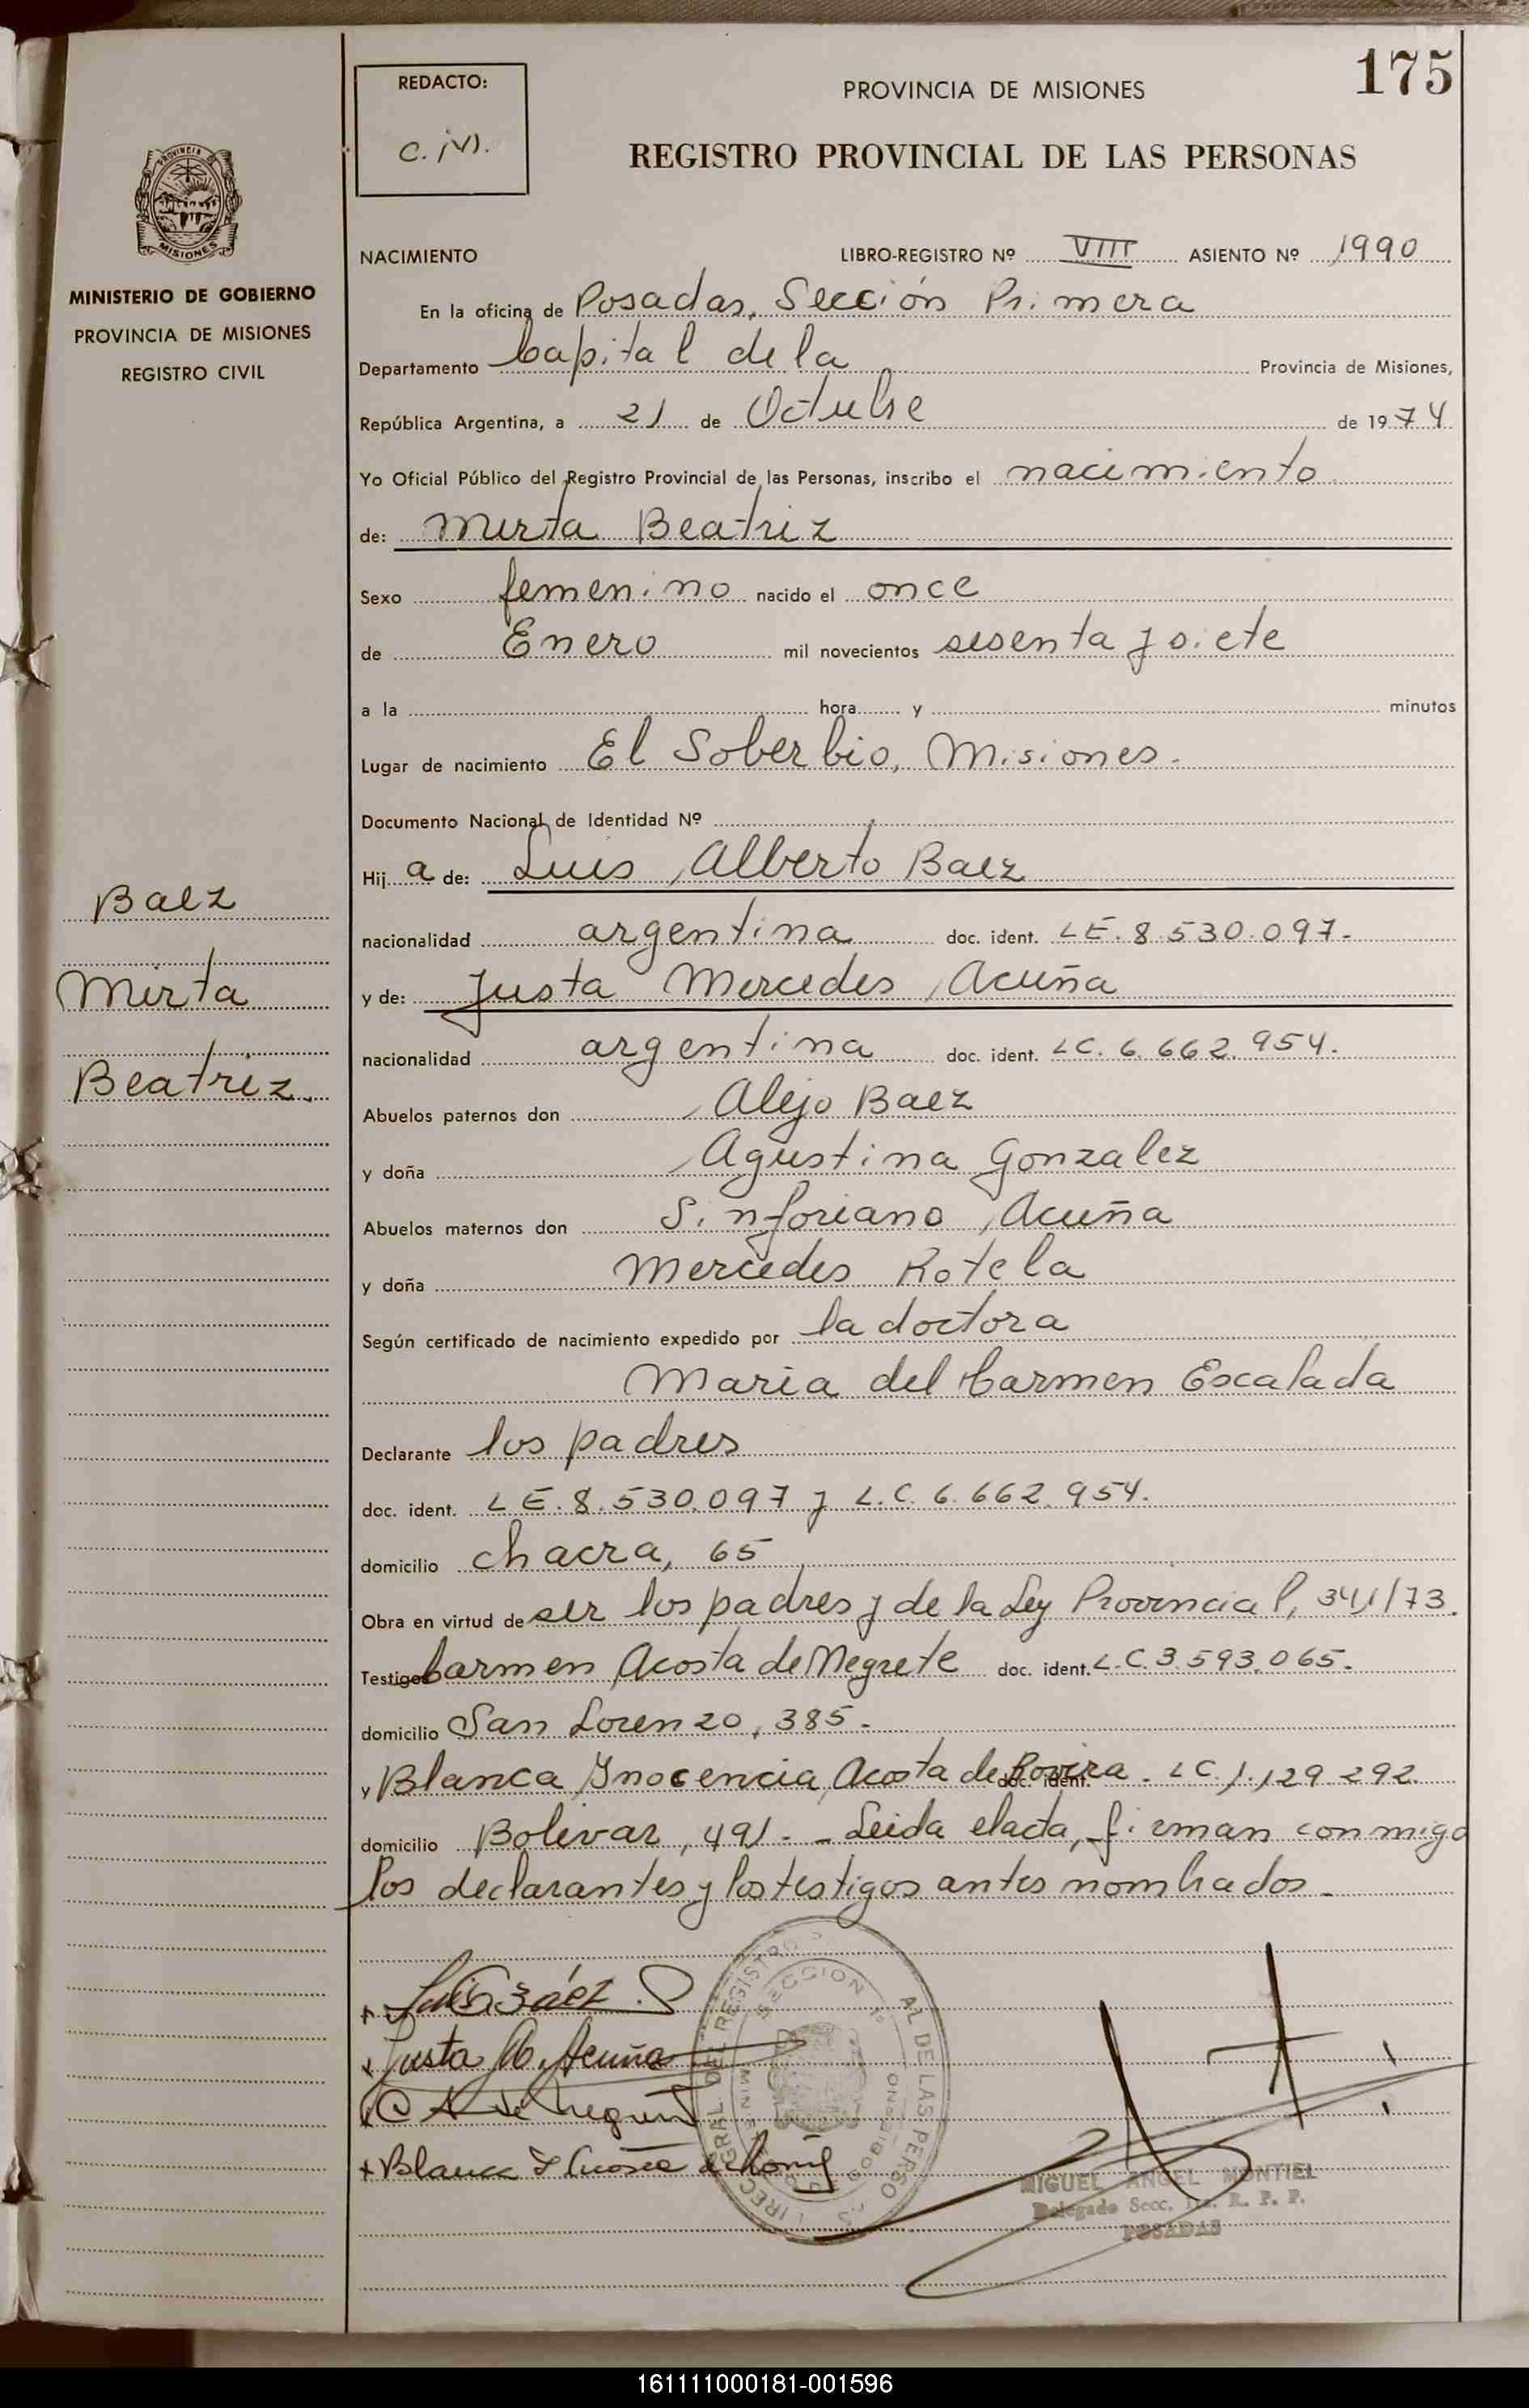 175
REDACTO:
PROVINCIA DE MISIONES
REGISTRO PROVINCIAL DE LAS PERSONAS
PROVINCIA DE
MISIONES
MINISTERIO DE GOBIERNO
PROVINCIA DE MISIONES
REGISTRO CIVIL
NACIMIENTO LIBRO-REGISTRO Nº VIII ASIENTO Nº 1990
En la oficina de Posadas, Sección Primera
Departamento Capital de la Provincia de Misiones,
República Argentina, a 21 de Octubre de 1974
Yo Oficial Público del Registro Provincial de las Personas, inscribo el nacimiento
de: Mirta Beatriz
Sexo femenino nacido el once
de Enero mil novecientos sesenta y siete
a la hora y minutos
Lugar de nacimiento El Soberbio, Misiones.
Documento Nacional de Identidad Nº
Hij a de: Luis Alberto Baez
nacionalidad argentina doc. ident. LE. 8.530.097.
y de: Justa Mercedes Acuña
nacionalidad argentina doc. ident. LC. 6.662.954.
Abuelos paternos don Alejo Baez
y doña Agustina Gonzalez
Abuelos maternos don Sinforiano Acuña
y doña Mercedes Rotela
Según certificado de nacimiento expedido por la doctora
Maria del Carmen Escalada
Declarante los padres
doc. ident. LE. 8.530.097 y L.C. 6.662.954.
domicilio chacra, 65
Obra en virtud de ser los padres y de la Ley Provincial, 341/73.
Testigos Carmen Acosta de Negrete doc. ident. L.C. 3.593.065.
domicilio San Lorenzo, 385.
y Blanca Inocencia Acosta de Rovira doc. ident. LC. 1.129.292.
domicilio Bolivar, 491. - Leida el acta, firman conmigo
los declarantes y los testigos antes nombrados.
Baez
Mirta
Beatriz.
Luis Báez
Justa M. Acuña
C A de Negrete
Blanca I Acosta de
SECCION 1º
MIGUEL ANGEL MONTIEL
Delegado Secc. 1ra. R. P. P.
POSADAS
161111000181-001596